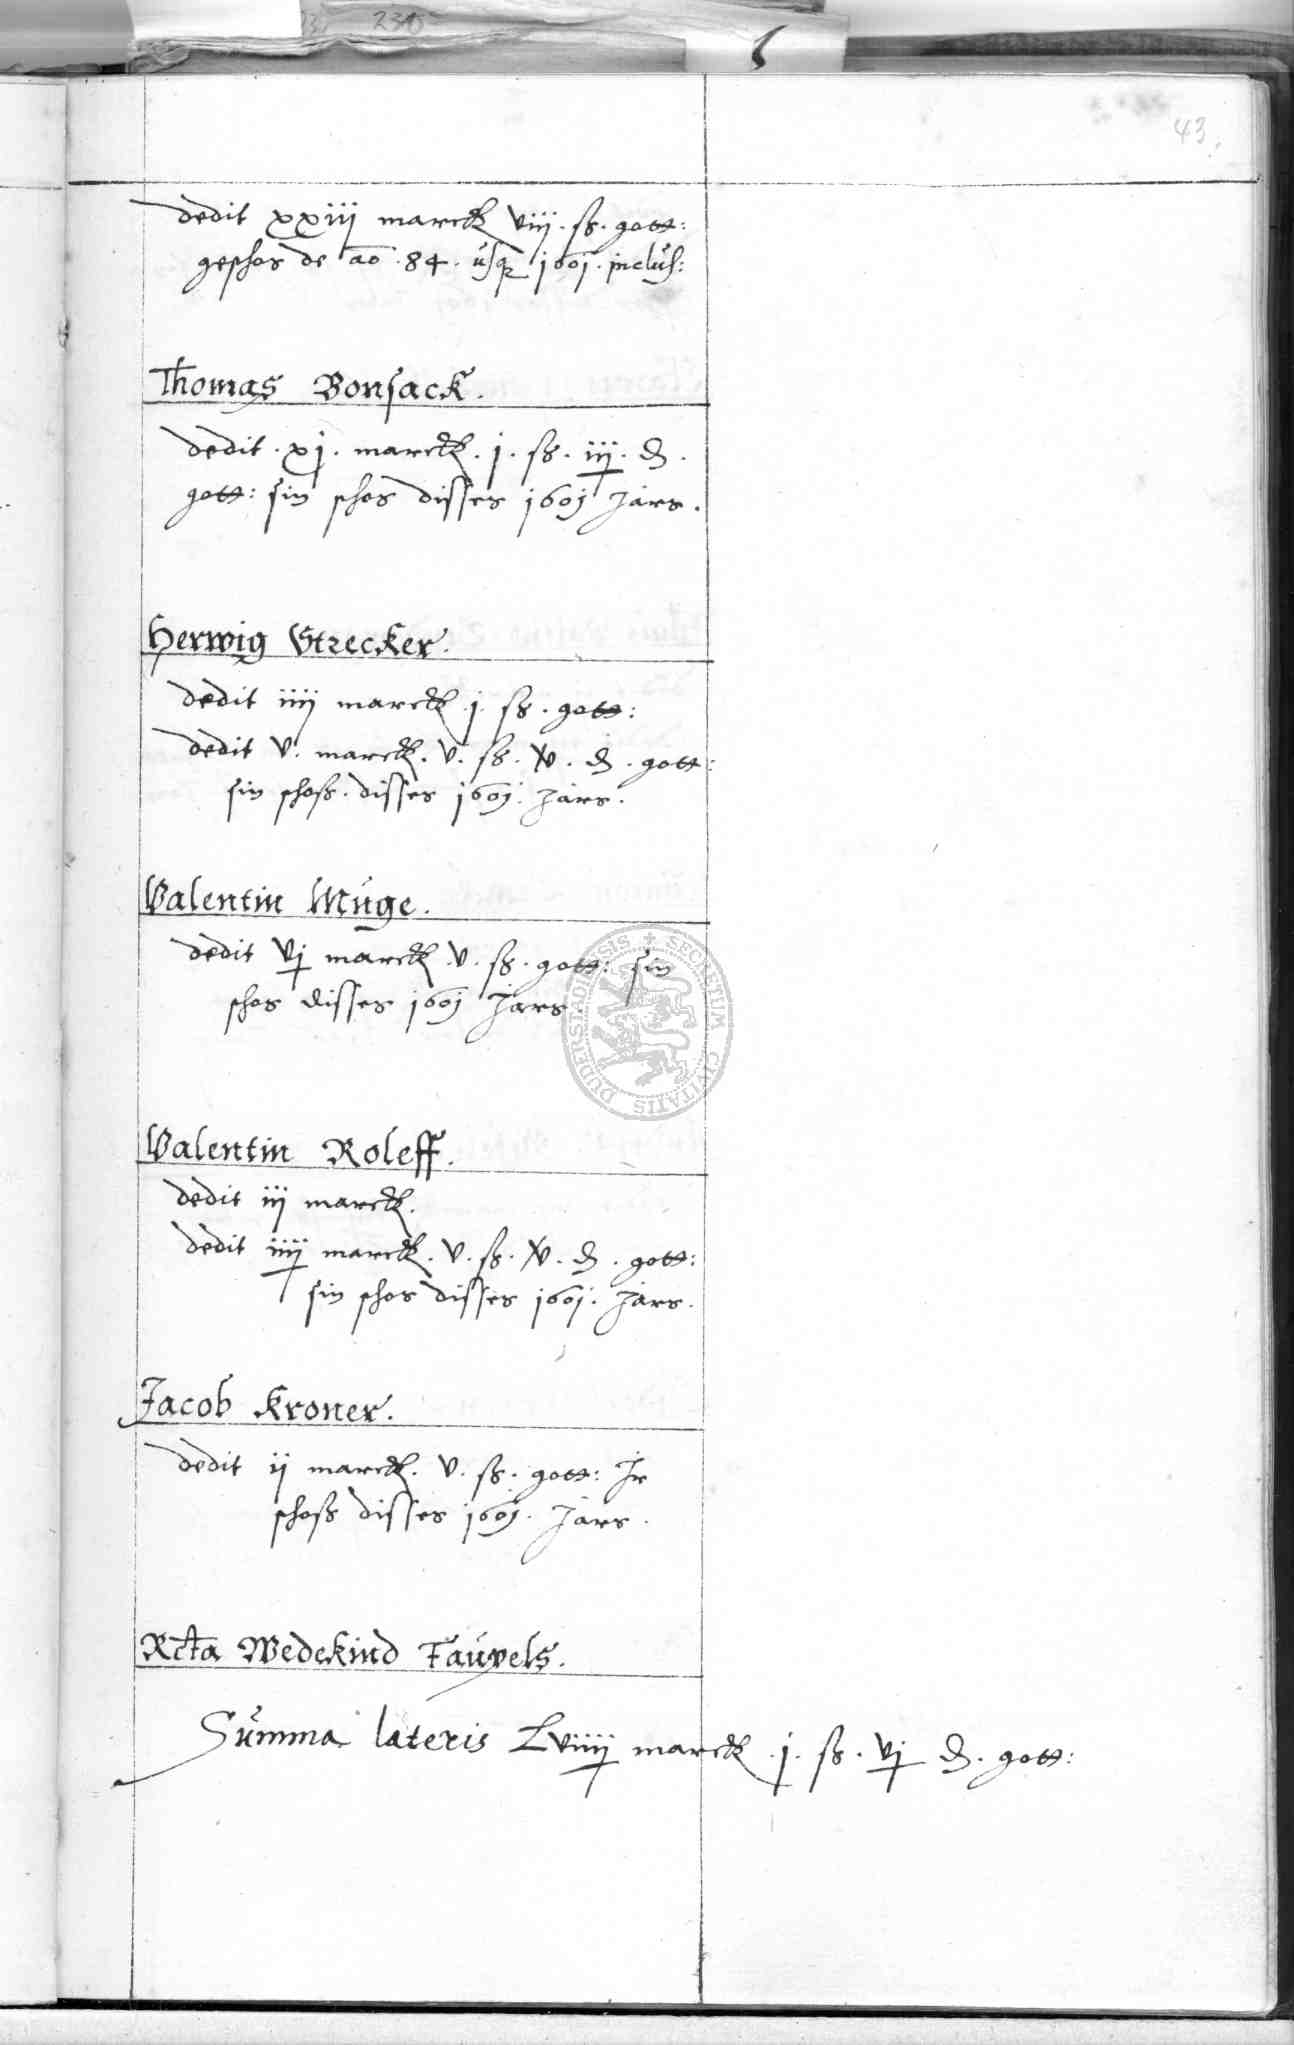 230
43.
dedit xxiij marck viij. ß. gott:
geschos de ao. 84. usq 1601. inclus:
Thomas Bonsack.
dedit. xj. marck. j. ß. iij. d.
gott: sin schos disses 1601 Jars.
Herwig Strecker.
dedit iiij marck. j. ß. gott:
dedit v. marck. v. ß. xv. d. gott:
sin schoß. disses 1601. Jars.
Valentin Müge.
dedit vj marck. v. ß. gott: sin
schos disses 1601 Jars.
SECRETUM CIVITATIS DUDERSTADIENSIS
Valentin Roleff.
dedit iij marck.
dedit iiij marck. v. ß. xv. d. gott:
sin schos disses 1601. Jars.
Jacob Kroner.
dedit ij marck. v. ß. gott: Jr
schoß disses 1601. Jars.
Rcta Wedekind
Summa lateris Lviiij marck. j. ß. vj d. gott: